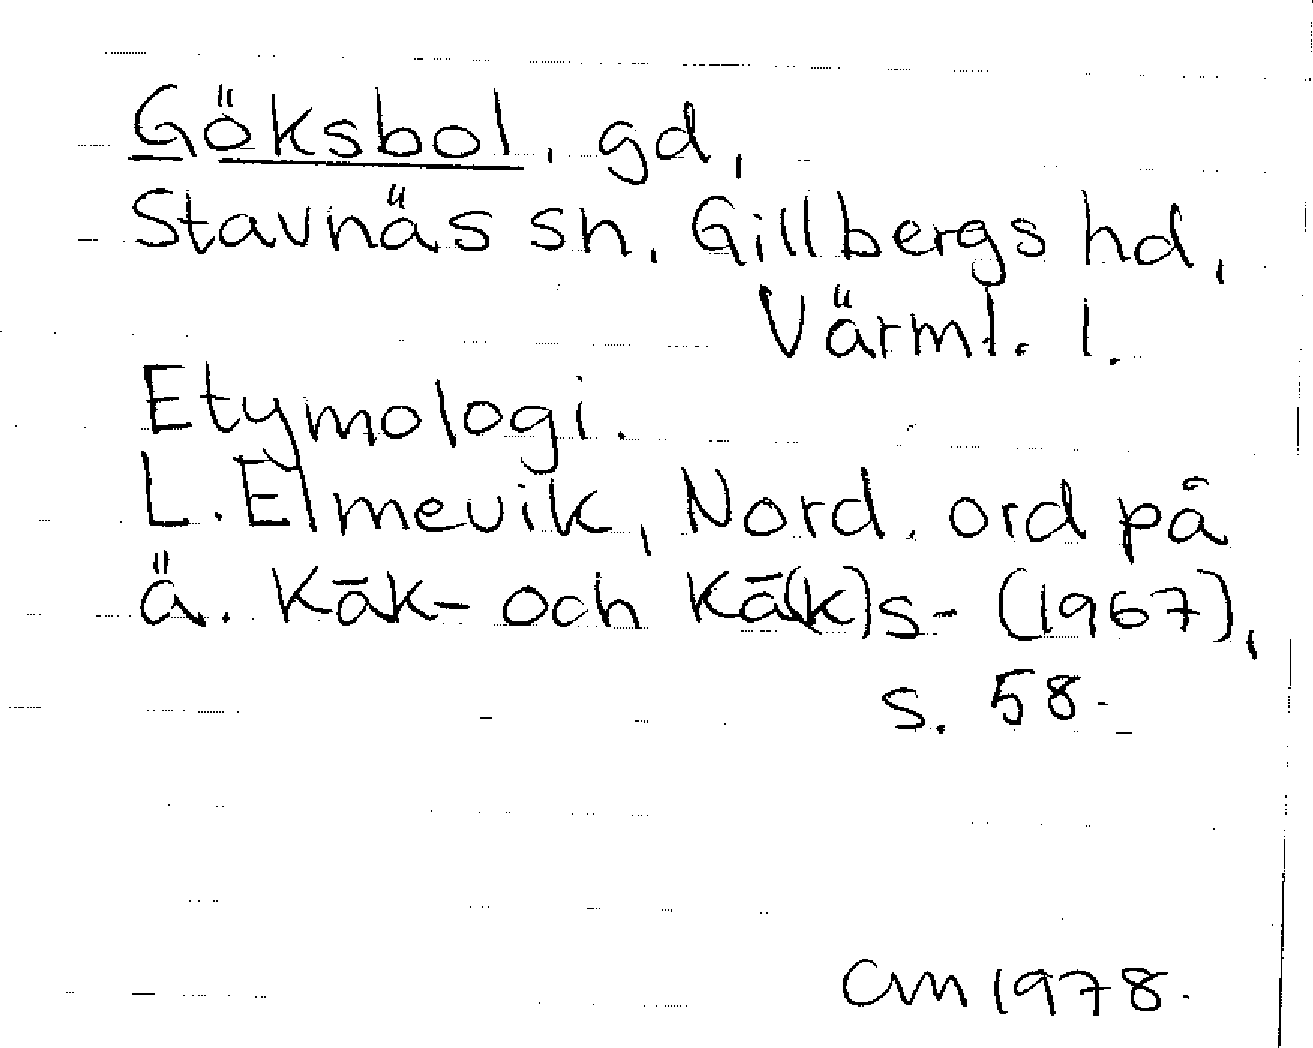 Göksbol, gd,
Stavnäs sn, Gillbergs hd,
Värml. l.
Etymologi.
L. Elmevik, Nord. ord på
ä. kāk- och kā(k)s- (1967),
s. 58.
CM 1978.